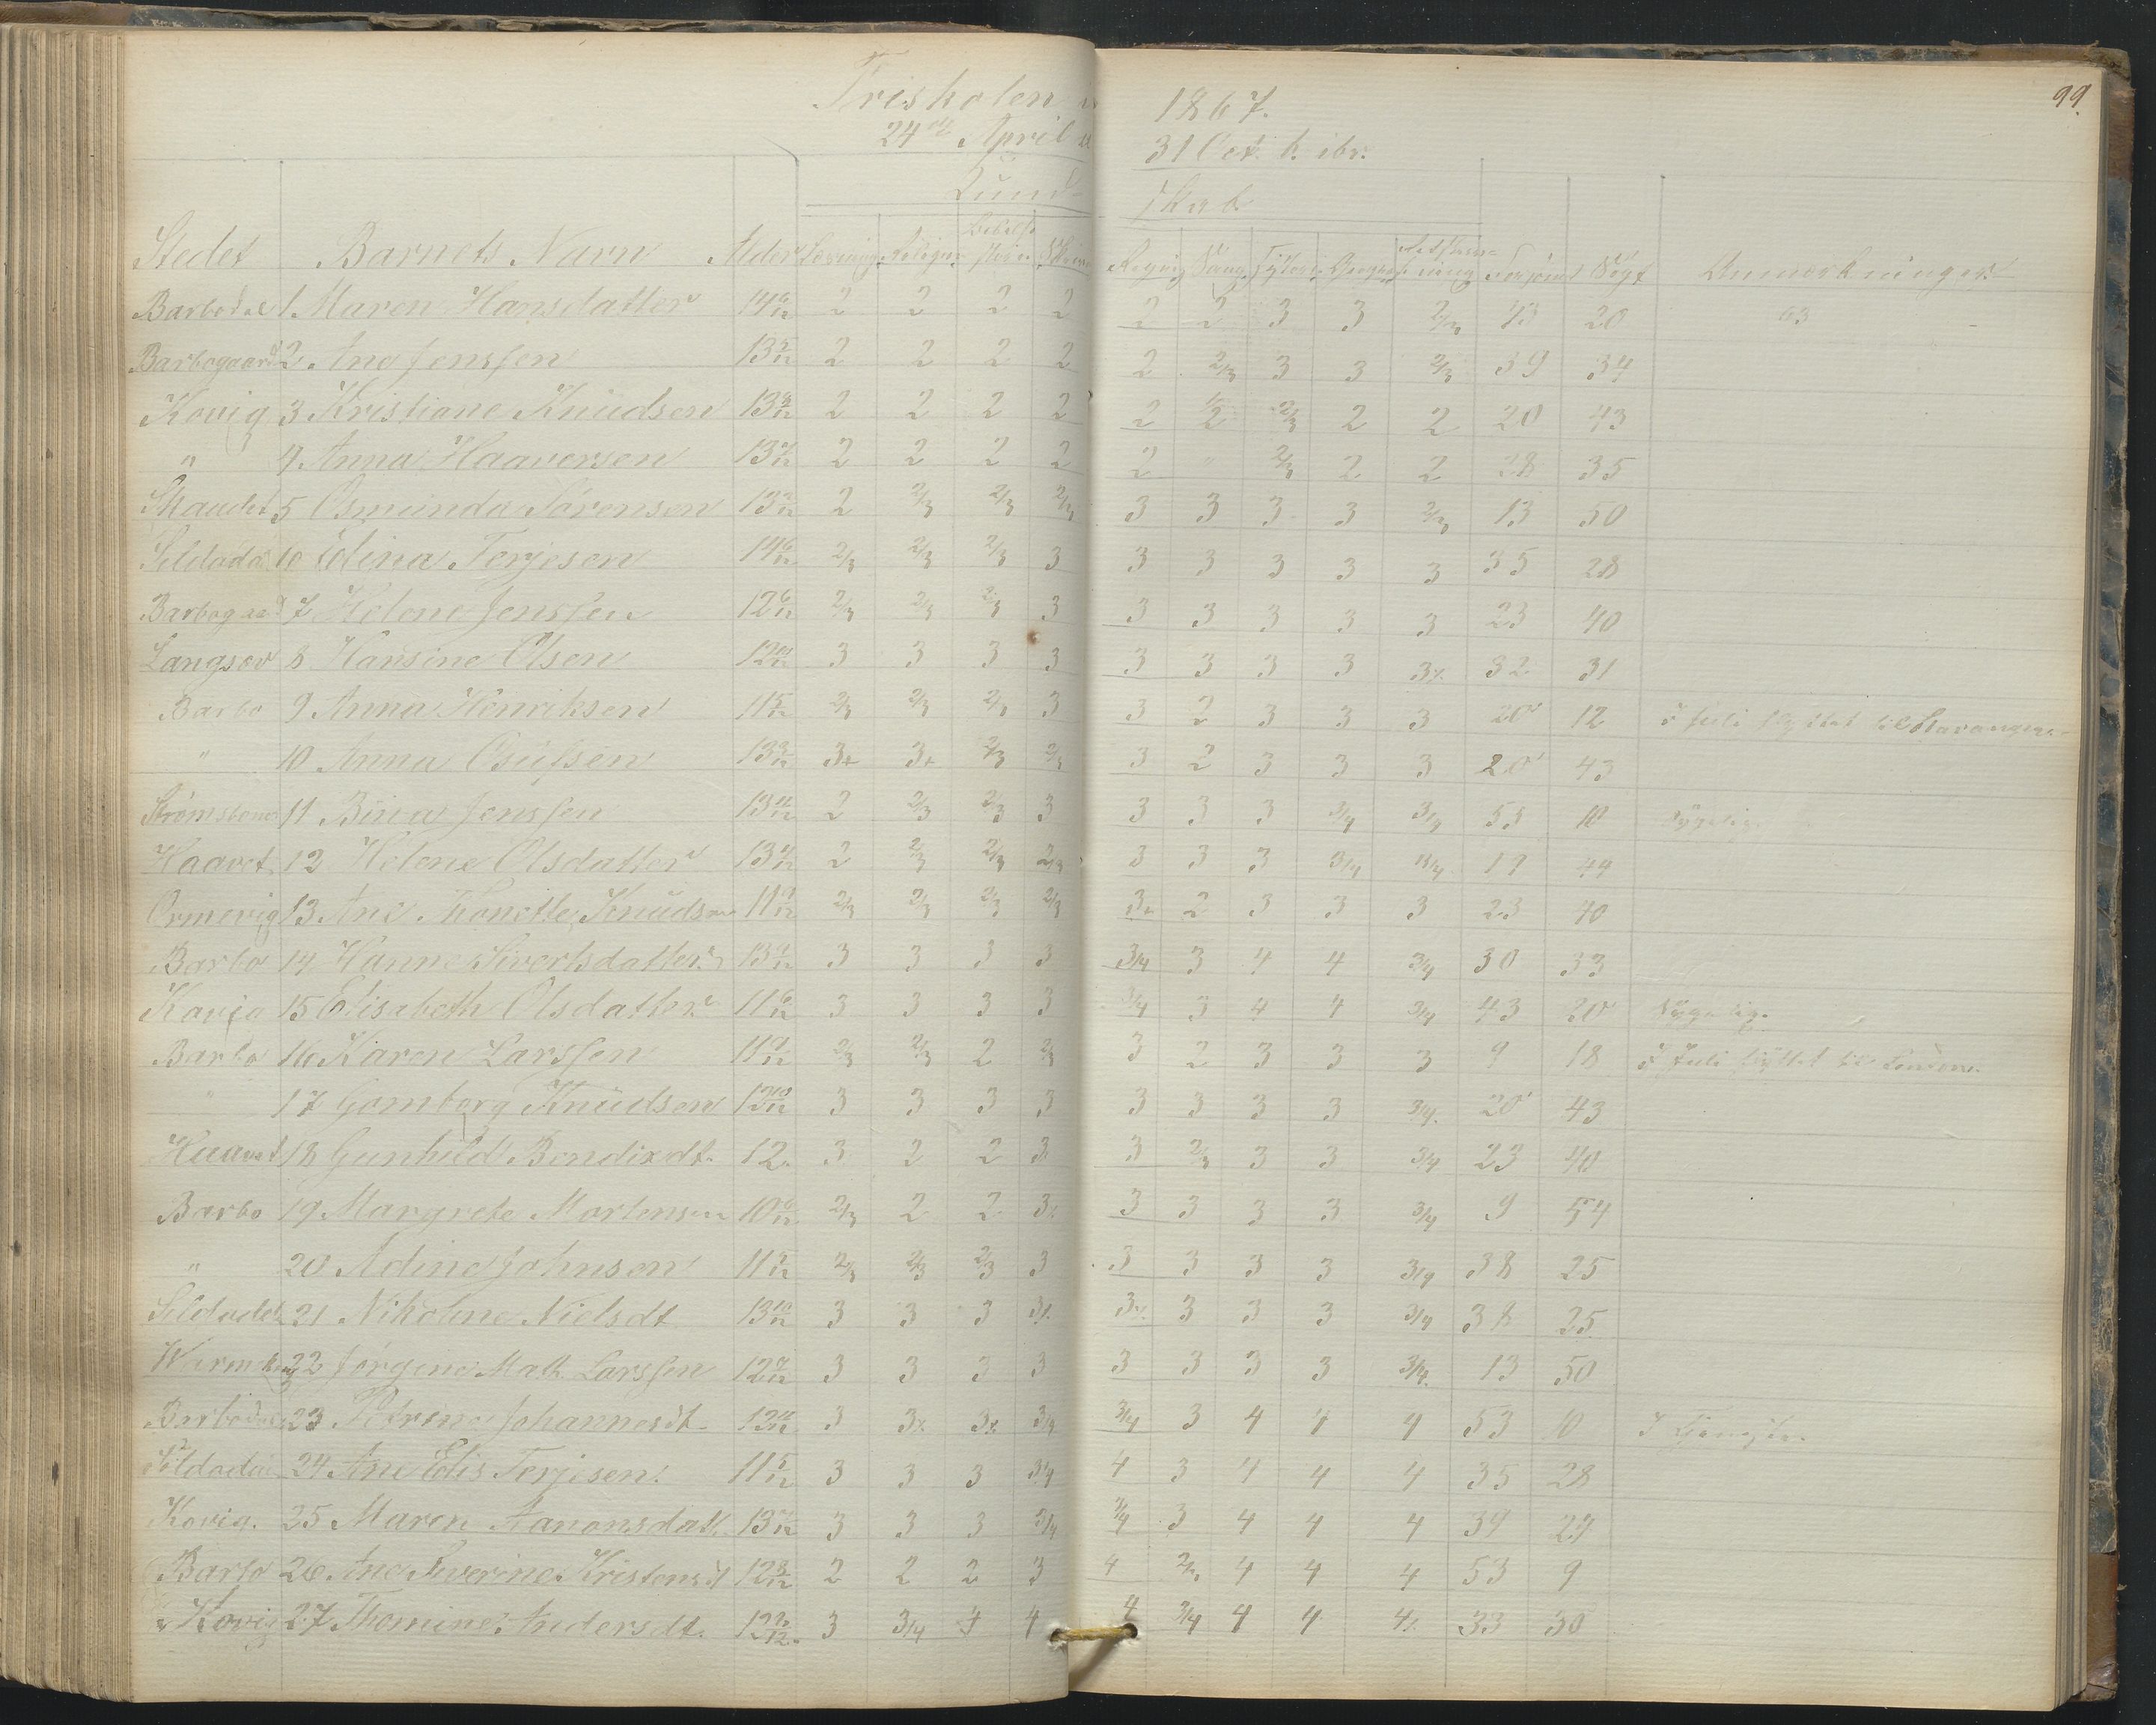 99.
Friskolen 1867.
24de April 31 Oct. h. ibr.
Kund- skab
Stedet Barnets Navn Alder Læsning Religion Bibelhistorie Skrivn Regng Sang Historie Geografi Retskrivning Forsøm Søgt Anmærkninger
Barbodal 1 Maren Hansdatter 14 6/12 2 2 2 2 2 2 3 3 2/3 43 20 63
Barbogaard 2 Ane Jenssen 13 5/12 2 2 2 2 2 2/3 3 3 2/3 39 34
Kovig 3 Kristiane Knudsen 13 8/12 2 2 2 2 2 1/2 2/3 2 2 20 43
" 4 Anna Haaversen 13 7/12 2 2 2 2 2 " 2/3 2 2 28 35
5 Osmunda Sörensen 13 2/12 2 2/3 2/3 2/3 3 3 3 3 2/3 13 50
6 Elina Terjesen 14 6/12 2/3 2/3 2/3 3 3 3 3 3 3 35 28
Barbogaa 7 Helene Jenssen 12 6/12 2/3 2/3 2/3 3 3 3 3 3 3 23 40
Langsæv 8 Hansine Olsen 12 10/12 3 3 3 3 3 3 3 3 3% 32 31
Barbo 9 Anna Henriksen 11 5/12 2/3 2/3 2/3 3 3 2 3 3 3 20 12 i Juli flyttet til Stavanger
" 10 Anna Osufsen 13 3/12 3+ 3+ 2/3 2/3 3 2 3 3 3 20 43
Strömsboens 11 Bina Jenssen 13 11/12 2 2/3 2/3 3 3 3 3 3/4 3/4 53 10 Sygelig.
Haavet 12 Helene Olsdatter 13 4/12 2 2/3 2/3 2/3 3 3 3 3/4 3/4 19 44
Ormevig 13 Ane Thonette Knudsen 11 9/12 2/3 2/3 2/3 2/3 3+ 2 3 3 3 23 40
Barbo 14 Hanne Sivertsdatter 13 4/12 3 3 3 3 3/4 3 4 4 3/4 30 33
15 Elisabeth Olsdatter 11 6/12 3 3 3 3 3/4 3 4 4 3/4 43 20 Sygelig.
Barbo 16 Karen Larssen 11 9/12 2/3 2/3 2 2/3 3 2 3 3 3 9 18 I Juli flyttet til
" 17 Gomborg Knudsen 12 10/12 3 3 3 3 3 3 3 3 3/4. 20 43
Haavet 18 Gunhild Bendixdt. 12. 3 2 2 3 3 2/3 3 3 3/4 23 40
Barbo 19 Margrete Mortensen 10 6/12 2/3 2 2 3% 3 3 3 3 3/4 9 54
" 20 Adine Johnsen 11 5/12 2/3 2/3 2/3 3 3 3 3 3 3/4 38 25
21 Nikoline Nielsdt 13 10/12 3 3 3 3% 3% 3 3 3 3/4 38 25
22 Jörgine Math. Larssen 12 7/12 3 3 3 3 3 3 3 3 3/4. 13 50
Barbodal 23 Petrine Johannesdt. 12 11/12 3 3% 3% 3/4 3/4 3 4 4 4 53 10 I Tjeneste.
24 Ane Elis Terjesen. 11 5/12 3 3 3 3/4 4 3 4 4 4 35 28
Kovig. 25 Maren Aanonsdatt. 13 7/12 3 3 3 3/4 3/4 3 4 4 4 39 24
Barbo 26 Ane Severine Kristensdt 12 8/12 2 2 2 3 4 2/3 4 4 4 53 9
Kovig 27 Thomine Andersdt. 12 2/12. 3 3/4 4 4 4 3/4 4 4 4% 33 30